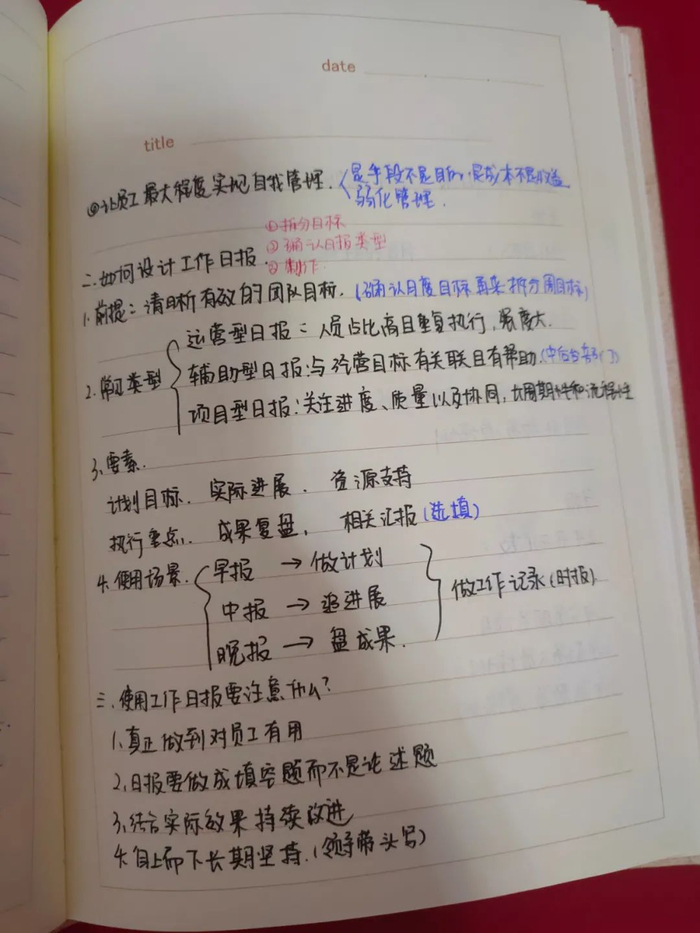 date
title
④让员工最大程度实现自我管理. 是手段不是目的,是成本不是收益
弱化管理.
二.如何设计工作日报. ①拆分目标
②确认日报类型
③制作
1.前提:清晰有效的团队目标.(确认月度目标再来拆分周目标)
2.常见类型
运营型日报:人员占比高且重复执行,强度大.
辅助型日报:与经营目标有关联且有帮助.(中后台部门)
项目型日报:关注进度、质量以及协同,长周期性和流程性
3.要素.
计划目标. 实际进展. 资源支持
执行重点. 成果复盘, 相关汇报(选填)
4.使用场景.
早报 → 做计划
中报 → 追进展
晚报 → 盘成果.
做工作记录(时报)
三.使用工作日报要注意什么?
1.真正做到对员工有用
2.日报要做成填空题而不是论述题
3.结合实际效果持续改进
4.自上而下长期坚持.(领导带头写)